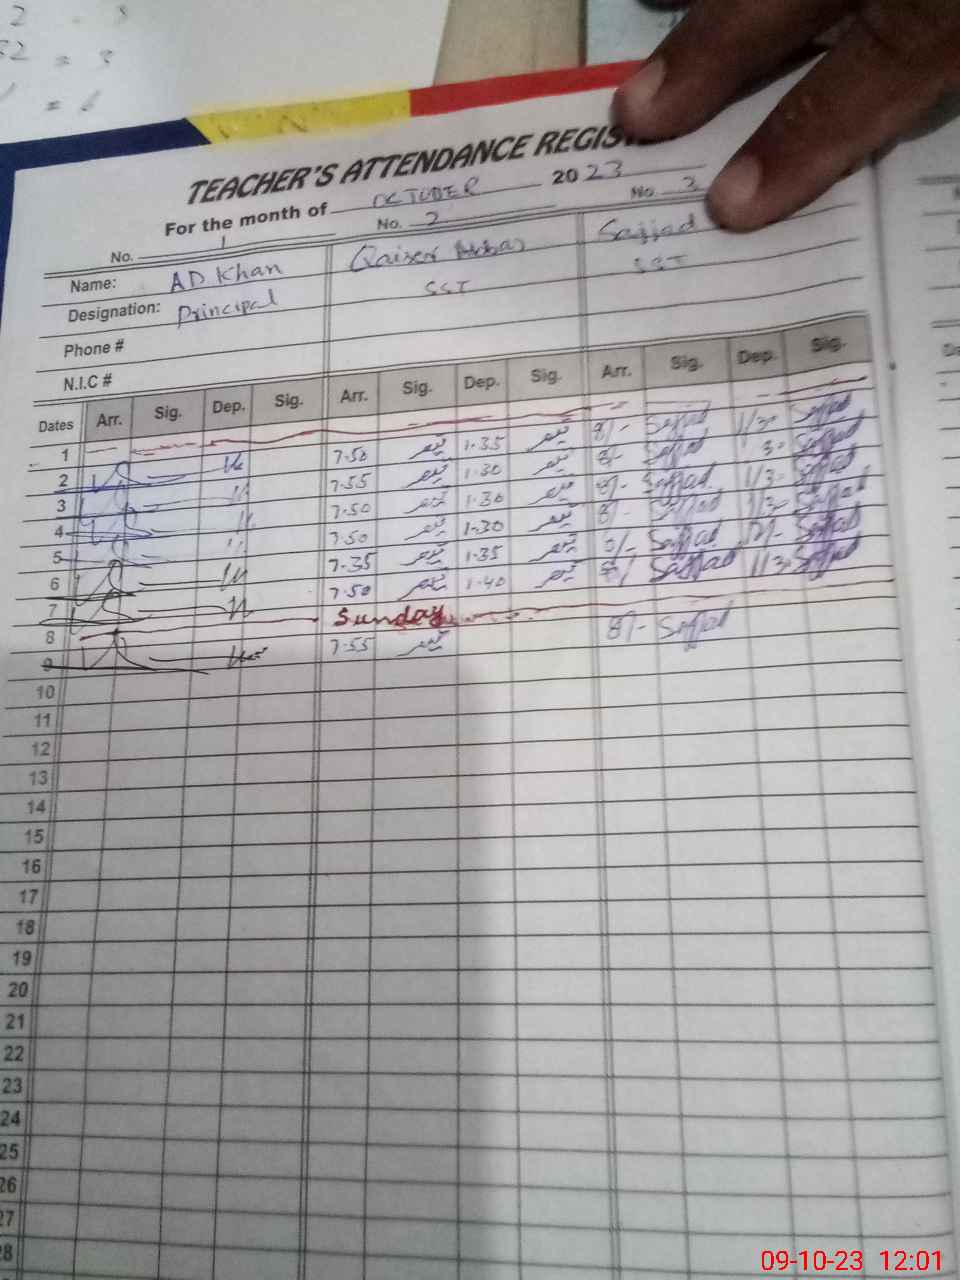 2 3
= 3
= 6
TEACHER'S ATTENDANCE REGIS
For the month of OCTOBER 2023
No. 1 No. 2 No. 3
Name: AD Khan Qaiser Abbas Sajjad
Designation: Principal SST SST
Phone #
N.I.C #
Dates Arr. Sig. Dep. Sig. Arr. Sig. Dep. Sig. Arr. Sig. Dep. Sig.
1
2 7-50 1-35 8/- Sajjad 1/3- Sajjad
3 7-55 1-30 8/- Sajjad 3- Sajjad
4 7-50 1-30 8/- Sajjad 1/3- Sajjad
5 7-50 1-30 8/- Sajjad 1/3- Sajjad
6 7-35 1-35 8/- Sajjad Sajjad
7 7-50 1-40 8/- Sajjad 1/3- Sajjad
8 Sunday
9 7-55 8/- Sajjad
10
11
12
13
14
15
16
17
18
19
20
21
22
23
24
25
26
27
28
09-10-23 12:01